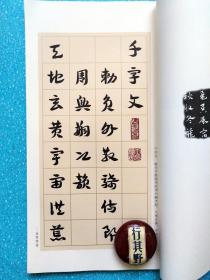 千字文
勅員外散騎侍郎
周興嗣次韻
天地玄黃宇宙洪荒
行其野